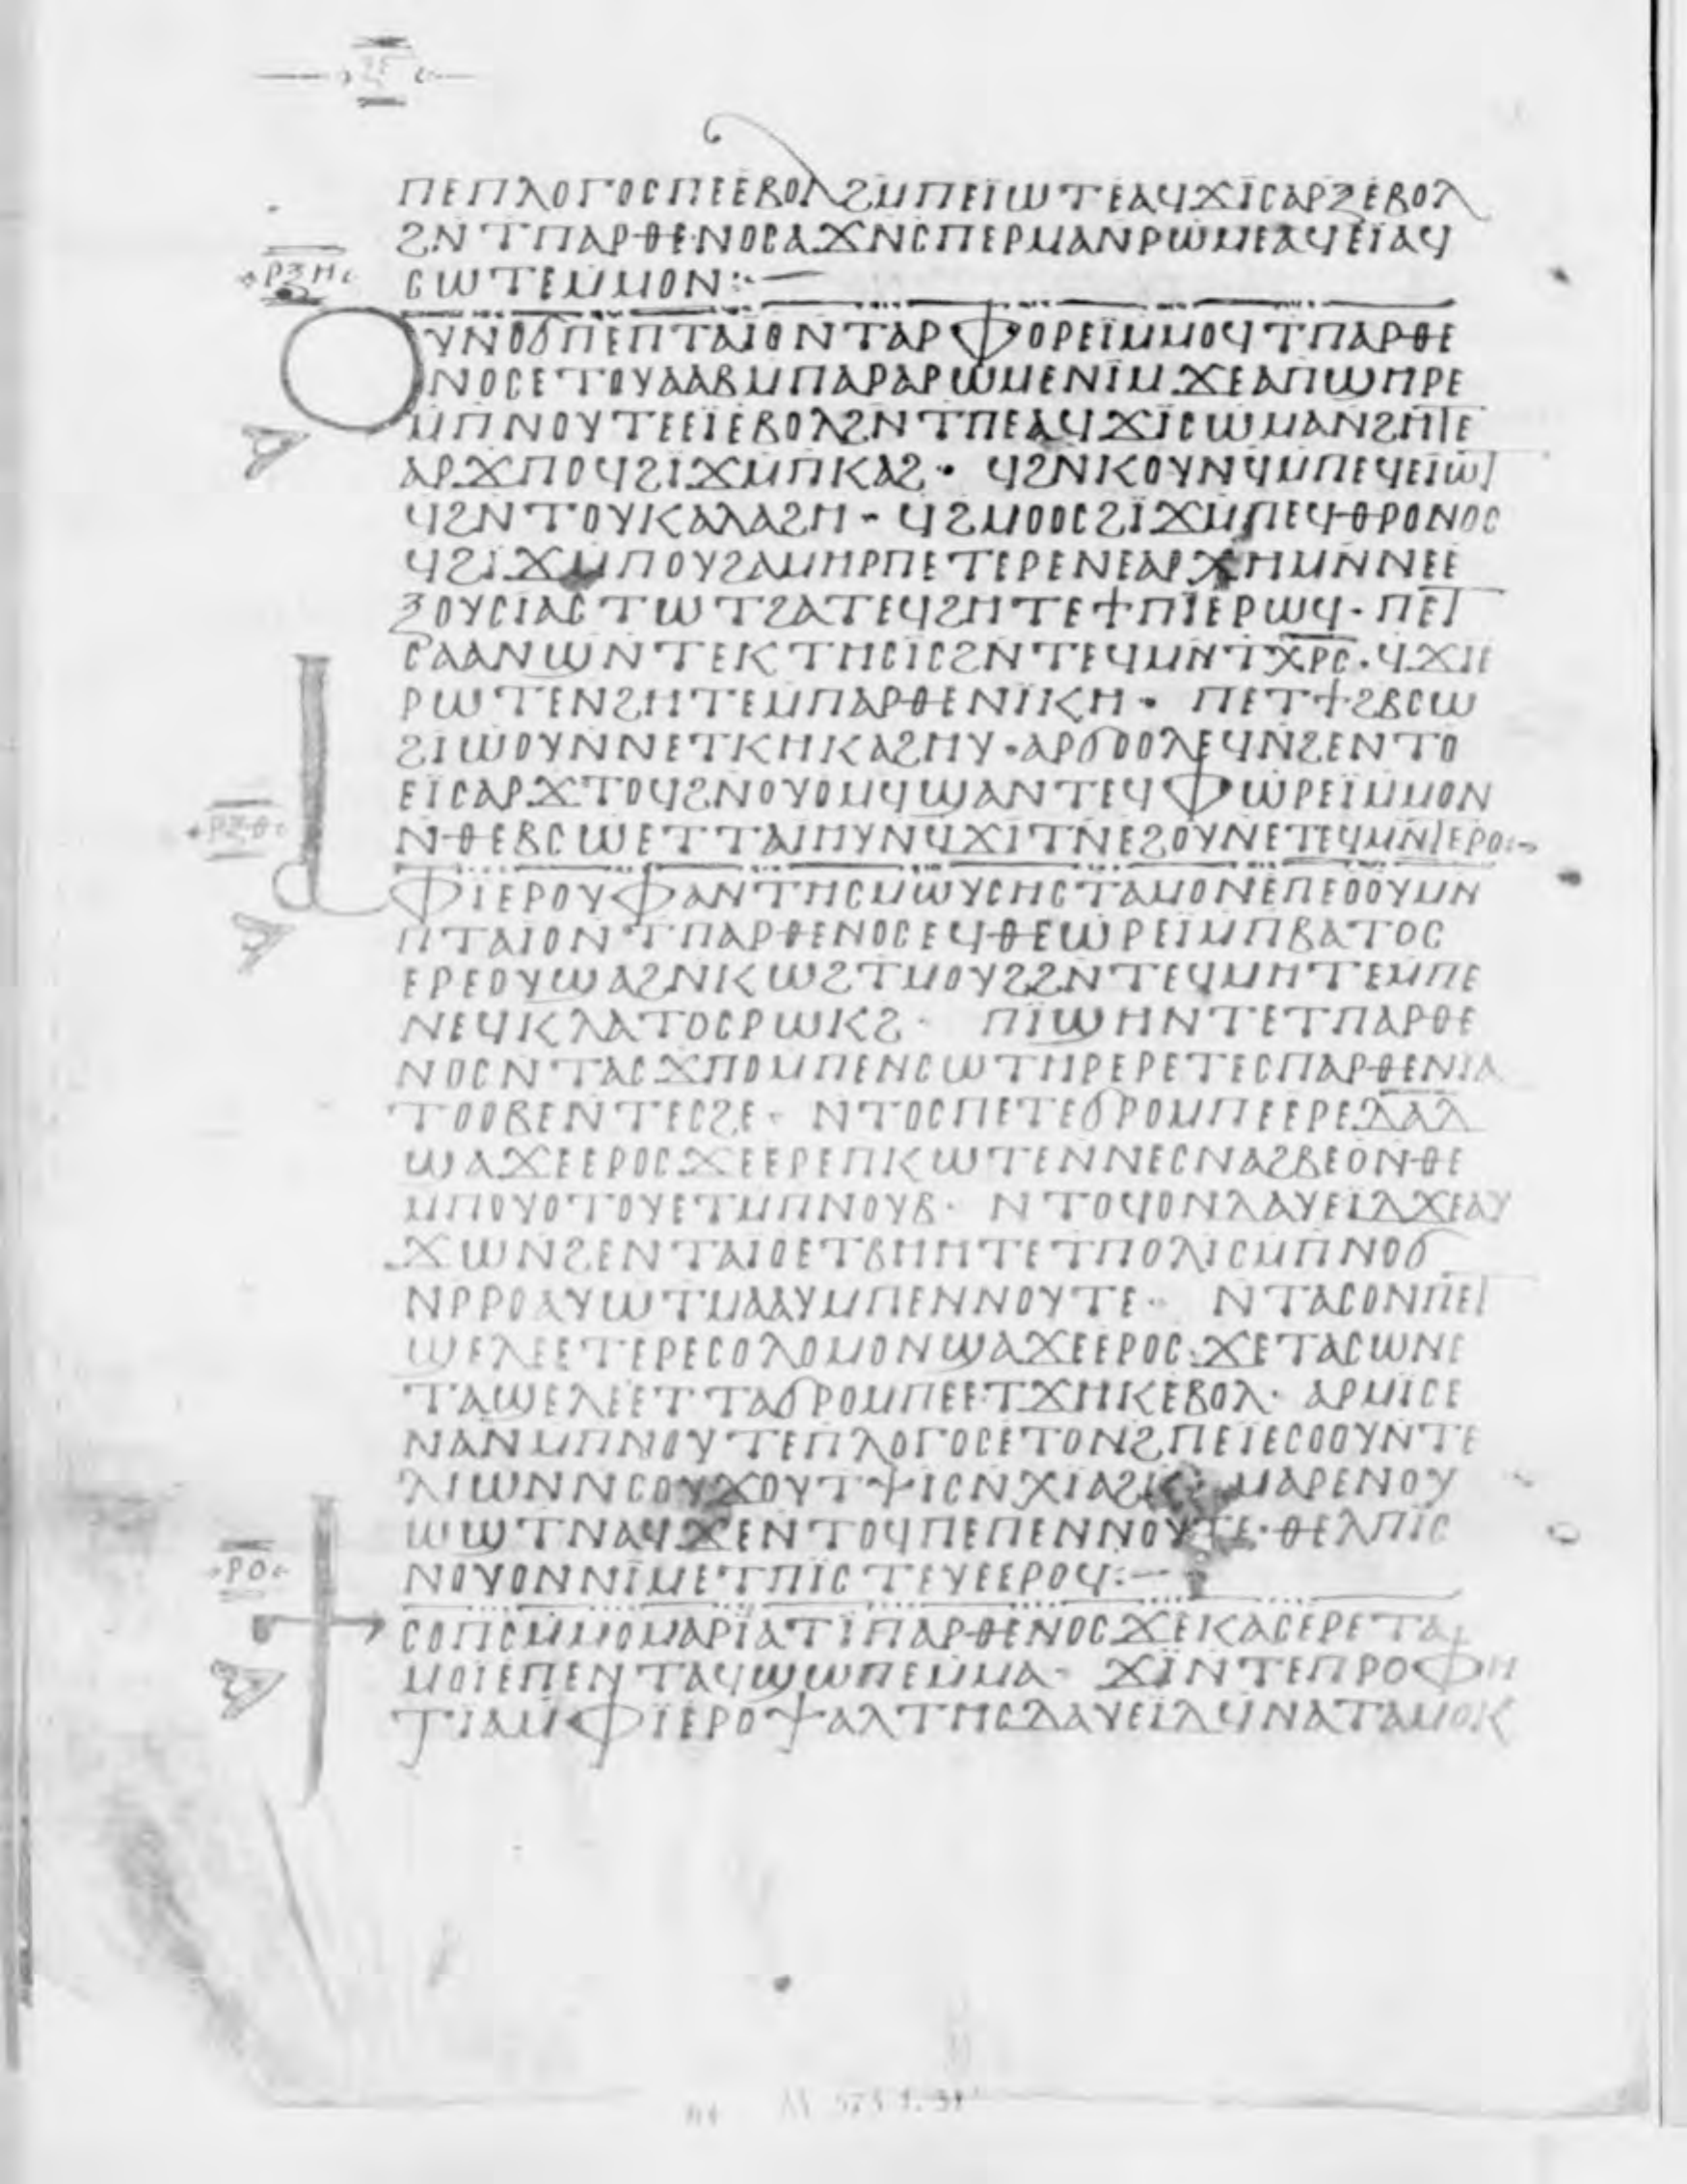 ⲝⲉ
ⲡⲉⲡⲗⲟⲅⲟⲥⲡⲉⲉⲃⲟⲗϩⲙⲡⲉⲓ̈ⲱⲧⲉⲁϥϫⲓ̈ⲥⲁⲣⲝⲉⲃⲟⲗ
ϩⲛⲧⲡⲁⲣⲑⲉⲛⲟⲥⲁϫⲛⲥⲡⲉⲣⲙⲁⲛⲣⲱⲙⲉⲁϥⲉⲓ̈ⲁϥ
ⲣⲝⲏ
ⲥⲱⲧⲉⲙⲙⲟⲛ:—
ⲟⲩⲛⲟϭⲡⲉⲡⲧⲁⲓ̈ⲟⲛⲧⲁⲣⲫⲟⲣⲉⲓ̈ⲙⲙⲟϥⲧⲡⲁⲣⲑⲉ
ⲛⲟⲥⲉⲧⲟⲩⲁⲁⲃⲙⲡⲁⲣⲁⲣⲱⲙⲉⲛⲓ̈ⲙ·ϫⲉⲁⲡϣⲏⲣⲉ
ⲙⲡⲛⲟⲩⲧⲉⲉⲓ̈ⲉⲃⲟⲗϩⲛⲧⲡⲉⲁϥϫⲓ̈ⲥⲱⲙⲁⲛϩⲏⲧⲉ
ⲁⲣϫⲡⲟϥϩⲓϫⲙⲡⲕⲁϩ· ϥϩⲛⲕⲟⲩⲛϥⲙⲡⲉϥⲉⲓⲱⲧ
ϥϩⲛⲧⲟⲩⲕⲁⲗⲁϩⲏ- ϥϩⲙⲟⲟⲥϩⲓ̈ϫⲙⲡⲉϥⲑⲣⲟⲛⲟⲥ
ϥϩⲓϫⲙⲡⲟⲩϩⲁⲙⲏⲣⲡⲉⲧⲉⲣⲉⲛⲉⲁⲣⲭⲏⲙⲛⲛⲉⲉ
ⲝⲟⲩⲥⲓⲁⲥⲧⲱⲧϩⲁⲧⲉϥϩⲏⲧⲉϯⲡⲓ̈ⲉⲣⲱϥ· ⲡⲉⲧ
ⲥⲁⲁⲛϣⲛⲧⲉⲕⲧⲏⲥⲓⲥϩⲛⲧⲉϥⲙⲛⲧⲭⲣⲥ·ϥϫⲓⲉ
ⲣⲱⲧⲉⲛϩⲏⲧⲉⲙⲡⲁⲣⲑⲉⲛⲓ̈ⲕⲏ· ⲡⲉⲧϯϩⲃⲥⲱ
ϩⲓⲱⲟⲩⲛⲛⲉⲧⲕⲏⲕⲁϩⲏⲩ·ⲁⲣϭⲟⲟⲗⲉϥⲛϩⲉⲛⲧⲟ
ⲉⲓ̈ⲥⲁⲣϫⲧⲟϥϩⲛⲟⲩⲟⲙϥϣⲁⲛⲧⲉϥⲫⲱⲣⲉⲓ̈ⲙⲙⲟⲛ
ⲣⲝⲑ
ⲛⲑⲉⲃⲥⲱⲉⲧⲧⲁⲓⲏⲩⲛϥϫⲓⲧⲛⲉϩⲟⲩⲛⲉⲧⲉϥⲙⲛⲧⲉⲣⲟ:-
ⲫⲓⲉⲣⲟⲩⲫⲁⲛⲧⲏⲥⲙⲱⲩⲥⲏⲥⲧⲁⲙⲟⲛⲉⲡⲉⲟⲟⲩⲙⲛ
ⲡⲧⲁⲓⲟⲛⲧⲡⲁⲣⲑⲉⲛⲟⲥⲉϥⲑⲉⲱⲣⲉⲓ̈ⲙⲡⲃⲁⲧⲟⲥ
ⲉⲣⲉⲟⲩϣⲁϩⲛⲕⲱϩⲧⲙⲟⲩϩϩⲛⲧⲉϥⲙⲏⲧⲉⲙⲡⲉ
ⲛⲉϥⲕⲗⲁⲧⲟⲥⲣⲱⲕϩ· ⲡⲓ̈ϣⲏⲛⲧⲉⲧⲡⲁⲣⲑⲉ
ⲛⲟⲥⲛⲧⲁⲥϫⲡⲟⲙⲡⲉⲛⲥⲱⲧⲏⲣⲉⲣⲉⲧⲉⲥⲡⲁⲣⲑⲉⲛⲓⲁ
ⲧⲟⲟⲃⲉⲛⲧⲉⲥϩⲉ· ⲛⲧⲟⲥⲡⲉⲧⲉϭⲣⲟⲙⲡⲉⲉⲣⲉⲇⲁⲇ
ϣⲁϫⲉⲉⲣⲟⲥϫⲉⲉⲣⲉⲡⲕⲱⲧⲉⲛⲛⲉⲥⲛⲁϩⲃⲉⲟⲛⲑⲉ
ⲙⲡⲟⲩⲟⲧⲟⲩⲉⲧⲙⲡⲛⲟⲩⲃ· ⲛⲧⲟϥⲟⲛⲇⲁⲩⲉⲓⲇϫⲉⲁⲩ
ϫⲱⲛϩⲉⲛⲧⲁⲓⲟⲉⲧⲃⲏⲏⲧⲉⲧⲡⲟⲗⲓⲥⲙⲡⲛⲟϭ
ⲛⲣⲣⲟⲁⲩⲱⲧⲙⲁⲁⲩⲙⲡⲉⲛⲛⲟⲩⲧⲉ· ⲛⲧⲁⲥⲟⲛⲡⲉⲧ
ϣⲉⲗⲉⲉⲧⲉⲣⲉⲥⲟⲗⲟⲙⲟⲛϣⲁϫⲉⲉⲣⲟⲥ·ϫⲉⲧⲁⲥⲱⲛⲉ
ⲧⲁϣⲉⲗⲉⲉⲧⲧⲁϭⲣⲟⲙⲡⲉⲉⲧϫⲏⲕⲉⲃⲟⲗ· ⲁⲣⲙⲓⲥⲉ
ⲛⲁⲛⲙⲡⲛⲟⲩⲧⲉⲡⲗⲟⲅⲟⲥⲉⲧⲟⲛϩⲡⲉⲓ̈ⲉⲥⲟⲟⲩⲛⲧⲉ
ⲗⲓⲱⲛⲛⲥⲟⲩϫⲟⲩⲧⲯⲓⲥⲛⲭⲓⲁϩⲕ· ⲙⲁⲣⲉⲛⲟⲩ
ⲱϣⲧⲛⲁϥϫⲉⲛⲧⲟϥⲡⲉⲡⲉⲛⲛⲟⲩⲧⲉ·ⲑⲉⲗⲡⲓ̈ⲥ
ⲣⲟ
ⲛⲟⲩⲟⲛⲛⲓ̈ⲙⲉⲧⲡⲓ̈ⲥⲧⲉⲩⲉⲉⲣⲟϥ:—
ϯⲥⲟⲡⲥⲙⲙⲟⲙⲁⲣⲓ̈ⲁⲧⲓ̈ⲡⲁⲣⲑⲉⲛⲟⲥϫⲉⲕⲁⲥⲉⲣⲉⲧⲁ
ⲙⲟⲓⲉⲡⲉⲛⲧⲁϥϣⲱⲡⲉⲙⲙⲁ· ϫⲓ̈ⲛⲧⲉⲡⲣⲟⲫⲏ
ⲧⲓ̈ⲁⲙⲫⲓ̈ⲉⲣⲟⲯⲁⲗⲧⲏⲥⲇⲁⲩⲉⲓ̈ⲇϥⲛⲁⲧⲁⲙⲟⲕ